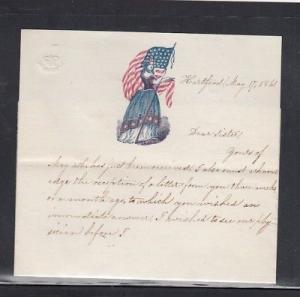 Hartford, May 17, 1861
Dear Sister,
Yours of
May 4th has just been received. I also must acknowl
edge the reception of a letter from you three weeks
or a month ago, to which you wished an
immediate answer. I wished to see our phy
sician before I